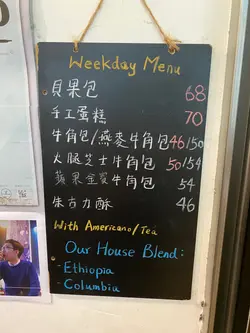 Weekday Menu
貝果包 68
手工蛋糕 70
牛角包/燕麥牛角包 46/50
火腿芝士牛角包 50/54
蘋果金寶牛角包 54
朱古力酥 46
With Americano/Tea
Our House Blend:
- Ethiopia
- Columbia